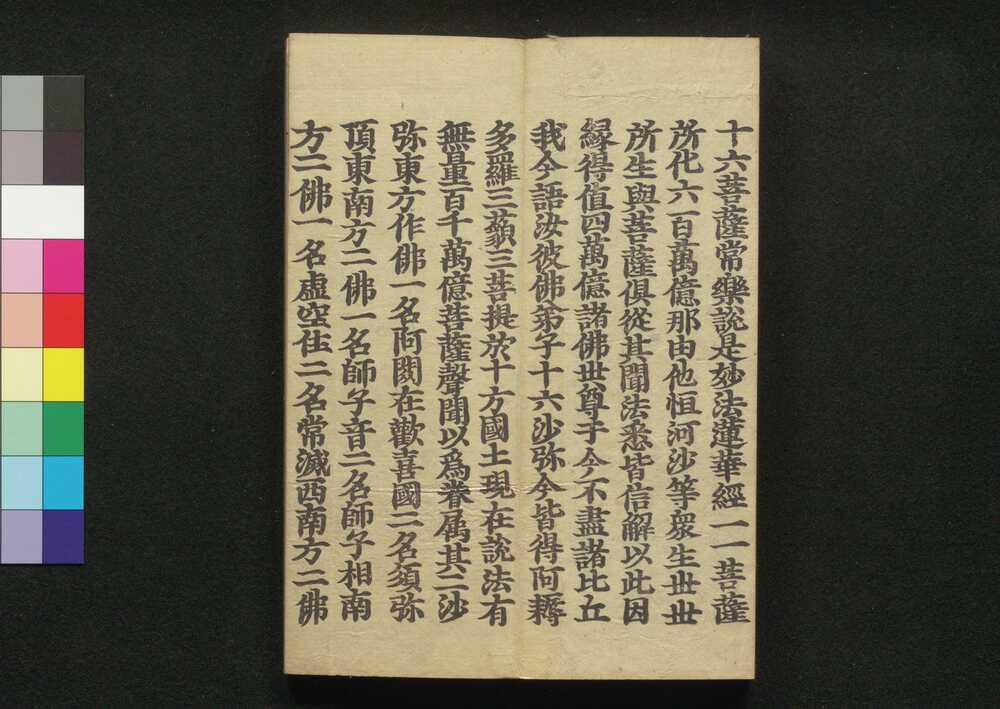 十六菩薩常樂說是妙法蓮華經一一菩薩
所化六百萬億那由他恒河沙等衆生世世
所生與菩薩俱從其聞法悉皆信解以此因
緣得值四萬億諸佛世尊于今不盡諸比丘
我今語汝彼佛弟子十六沙弥今皆得阿耨
多羅三藐三菩提於十方國土現在說法有
無量百千萬億菩薩聲聞以爲眷屬其二沙
弥東方作佛一名阿閦在歡喜國二名須弥
頂東南方二佛一名師子音二名師子相南
方二佛一名虛空住二名常滅西南方二佛